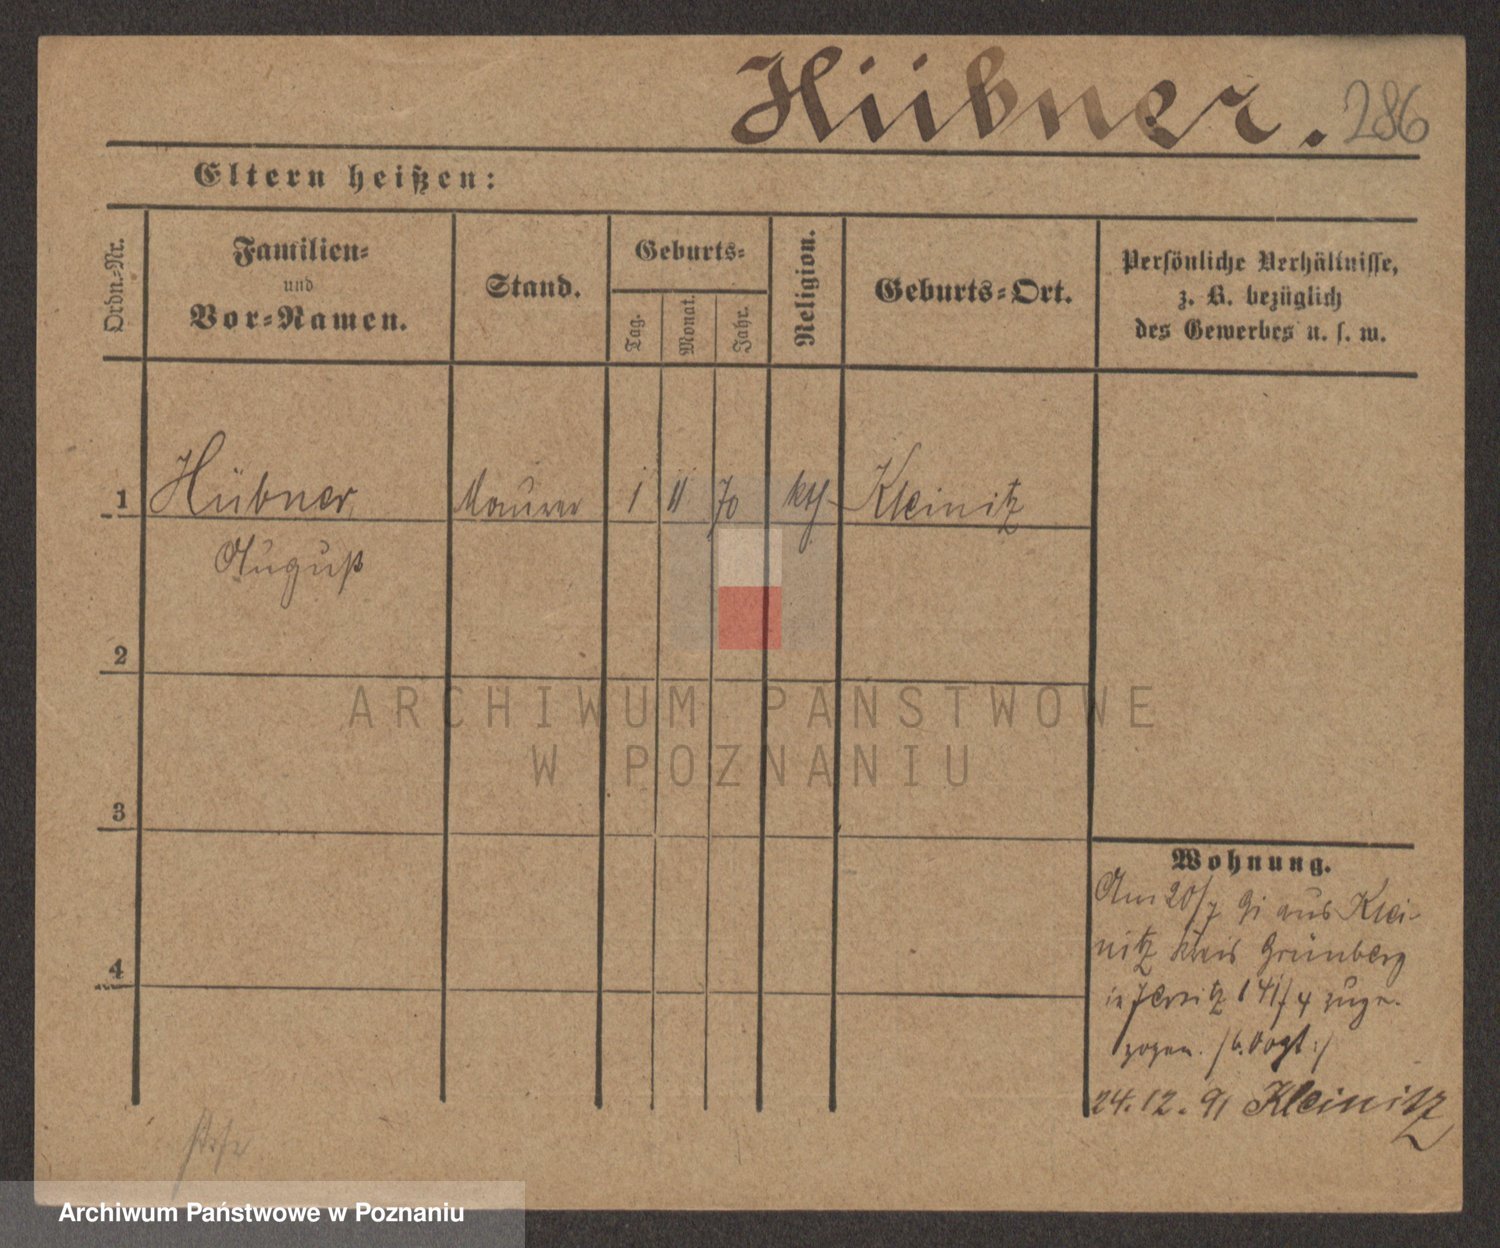 Hübner. 286
Eltern heißen:
Ordn.-Nr.
Familien-
und
Vor-Namen.
Stand.
Geburts-
Tag.
Monat.
Jahr.
Religion.
Geburts-Ort.
Persönliche Verhältnisse,
z. B. bezüglich
des Gewerbes u. s. w.
1 Hübner, Maurer 1 11 70 kth Kleinitz
August
2
ARCHIWUM PAŃSTWOWE
W POZNANIU
3
Wohnung.
Am 20/7 91 aus Klei-
nitz Kreis Grünberg
4
in Jersitz 141/4 zuge-
zogen. /b. Vogt:/
24.12.91 Kleinitz
Archiwum Państwowe w Poznaniu